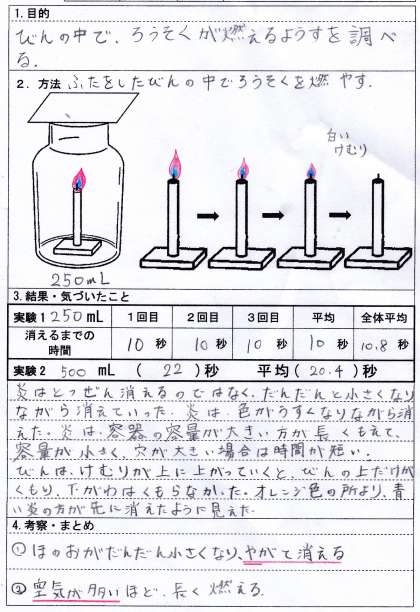 1.目的
びんの中で、ろうそくが燃えるようすを調べ
る.
2. 方法 ふたをしたびんの中でろうそくを燃やす.
白い
けむり
250mL
3.結果・気づいたこと
実験1 250mL 1回目 2回目 3回目 平均 全体平均
消えるまでの時間 10 秒 10 秒 10 秒 10 秒 10.8 秒
実験2 500 mL ( 22 )秒 平均( 20.4 )秒
炎はとつぜん消えるのではなく、だんだんと小さくなり
ながら消えていった。炎は、色がうすくなりながら消
えた。炎は、容器の容量が大きい方が長くもえて、
容量が小さく、穴が大きい場合は時間が短い.
びんは、けむりが上に上がっていくと、びんの上だけが
くもり、下がわはくもらなかった。オレンジ色の所より、青
い炎の方が先に消えたように見えた.
4.考察・まとめ
①ほのおがだんだん小さくなり、やがて消える
②空気が多いほど、長く燃える.